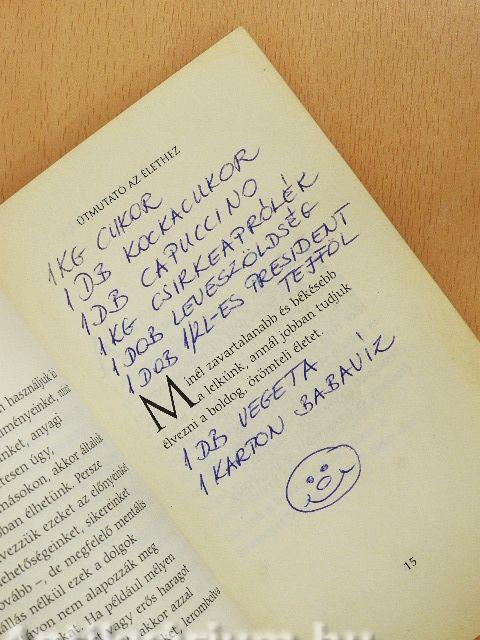 ÚTMUTATÓ AZ ÉLETHEZ
1KG CUKOR
1 DB KOCKACUKOR
1DB CAPUCCINO
1KG CSIRKEAPRÓLÉK
1 DOB LEVESZÖLDSÉG
1 DOB 1KL-ES PRESIDENT
TEJFÖL
Minél zavartalanabb és békésebb
a lelkünk, annál jobban tudjuk
élvezni a boldog, örömteli életet.
1 DB VEGETA
1 KARTON BABAVÍZ
15
használjuk
inket, anyagi
tesen úgy,
másokon, akkor általuk
ban élhetünk. Persze
vezzük ezeket az előnyeinket
hetőségeinket, sikereinket
ovább –, de megfelelő mentális
állás nélkül ezek a dolgok
nem alapozzák meg
Ha például mélyen
vagy erős haragot
akkor azzal
lerombolta